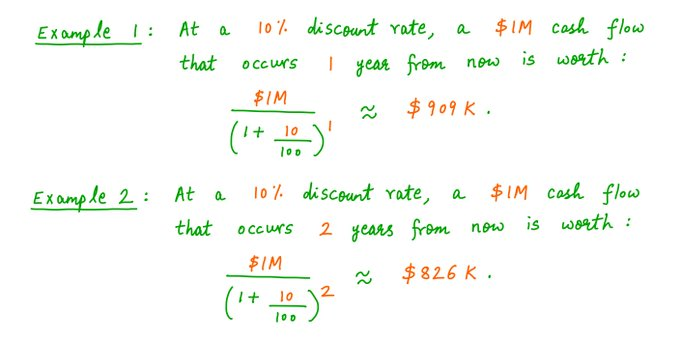 Example 1: At a 10% discount rate, a $1M cash flow
that occurs 1 year from now is worth:
$1M / (1 + 10/100)^1 ≈ $909K.
Example 2: At a 10% discount rate, a $1M cash flow
that occurs 2 years from now is worth:
$1M / (1 + 10/100)^2 ≈ $826K.